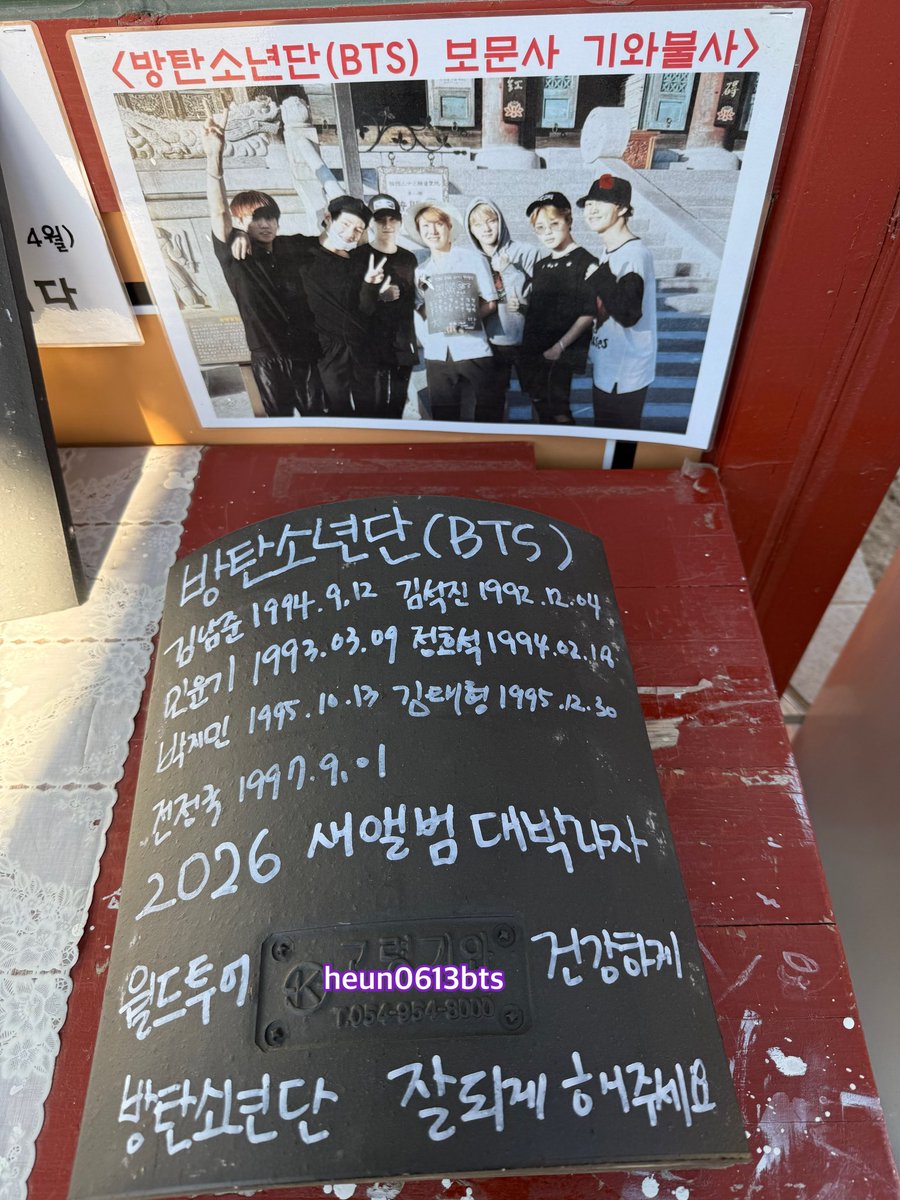 <방탄소년단(BTS) 보문사 기와불사>
4월)
다
방탄소년단(BTS)
김남준 1994.9.12 김석진 1992.12.04
민윤기 1993.03.09 정호석 1994.02.18
박지민 1995.10.13 김태형 1995.12.30
전정국 1997.9.01
2026 새앨범 대박나자
월드투어 건강하게
고령기와
heun0613bts
T.054-954-8000
방탄소년단 잘되게 해주세요